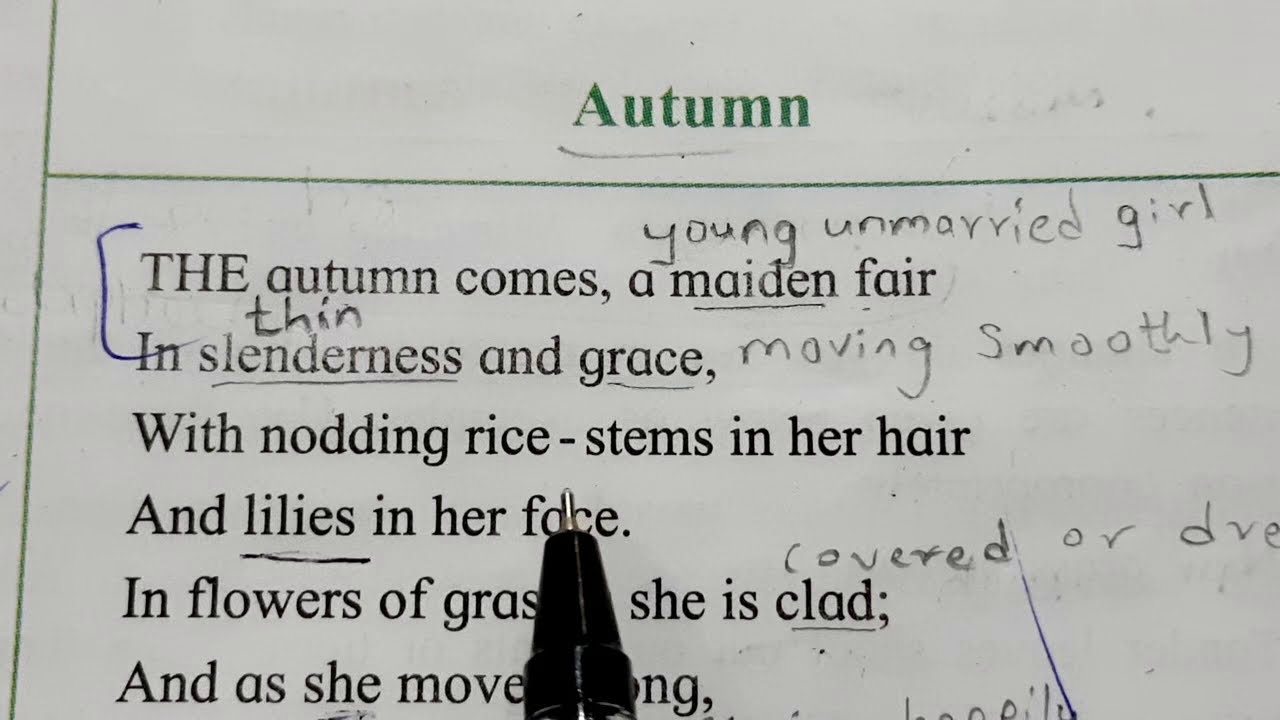 Autumn
young unmarried girl
THE autumn comes, a maiden fair
thin
In slenderness and grace, moving smoothly
With nodding rice-stems in her hair
And lilies in her face.
covered or dre
In flowers of gras she is clad;
And as she move ng,
happily